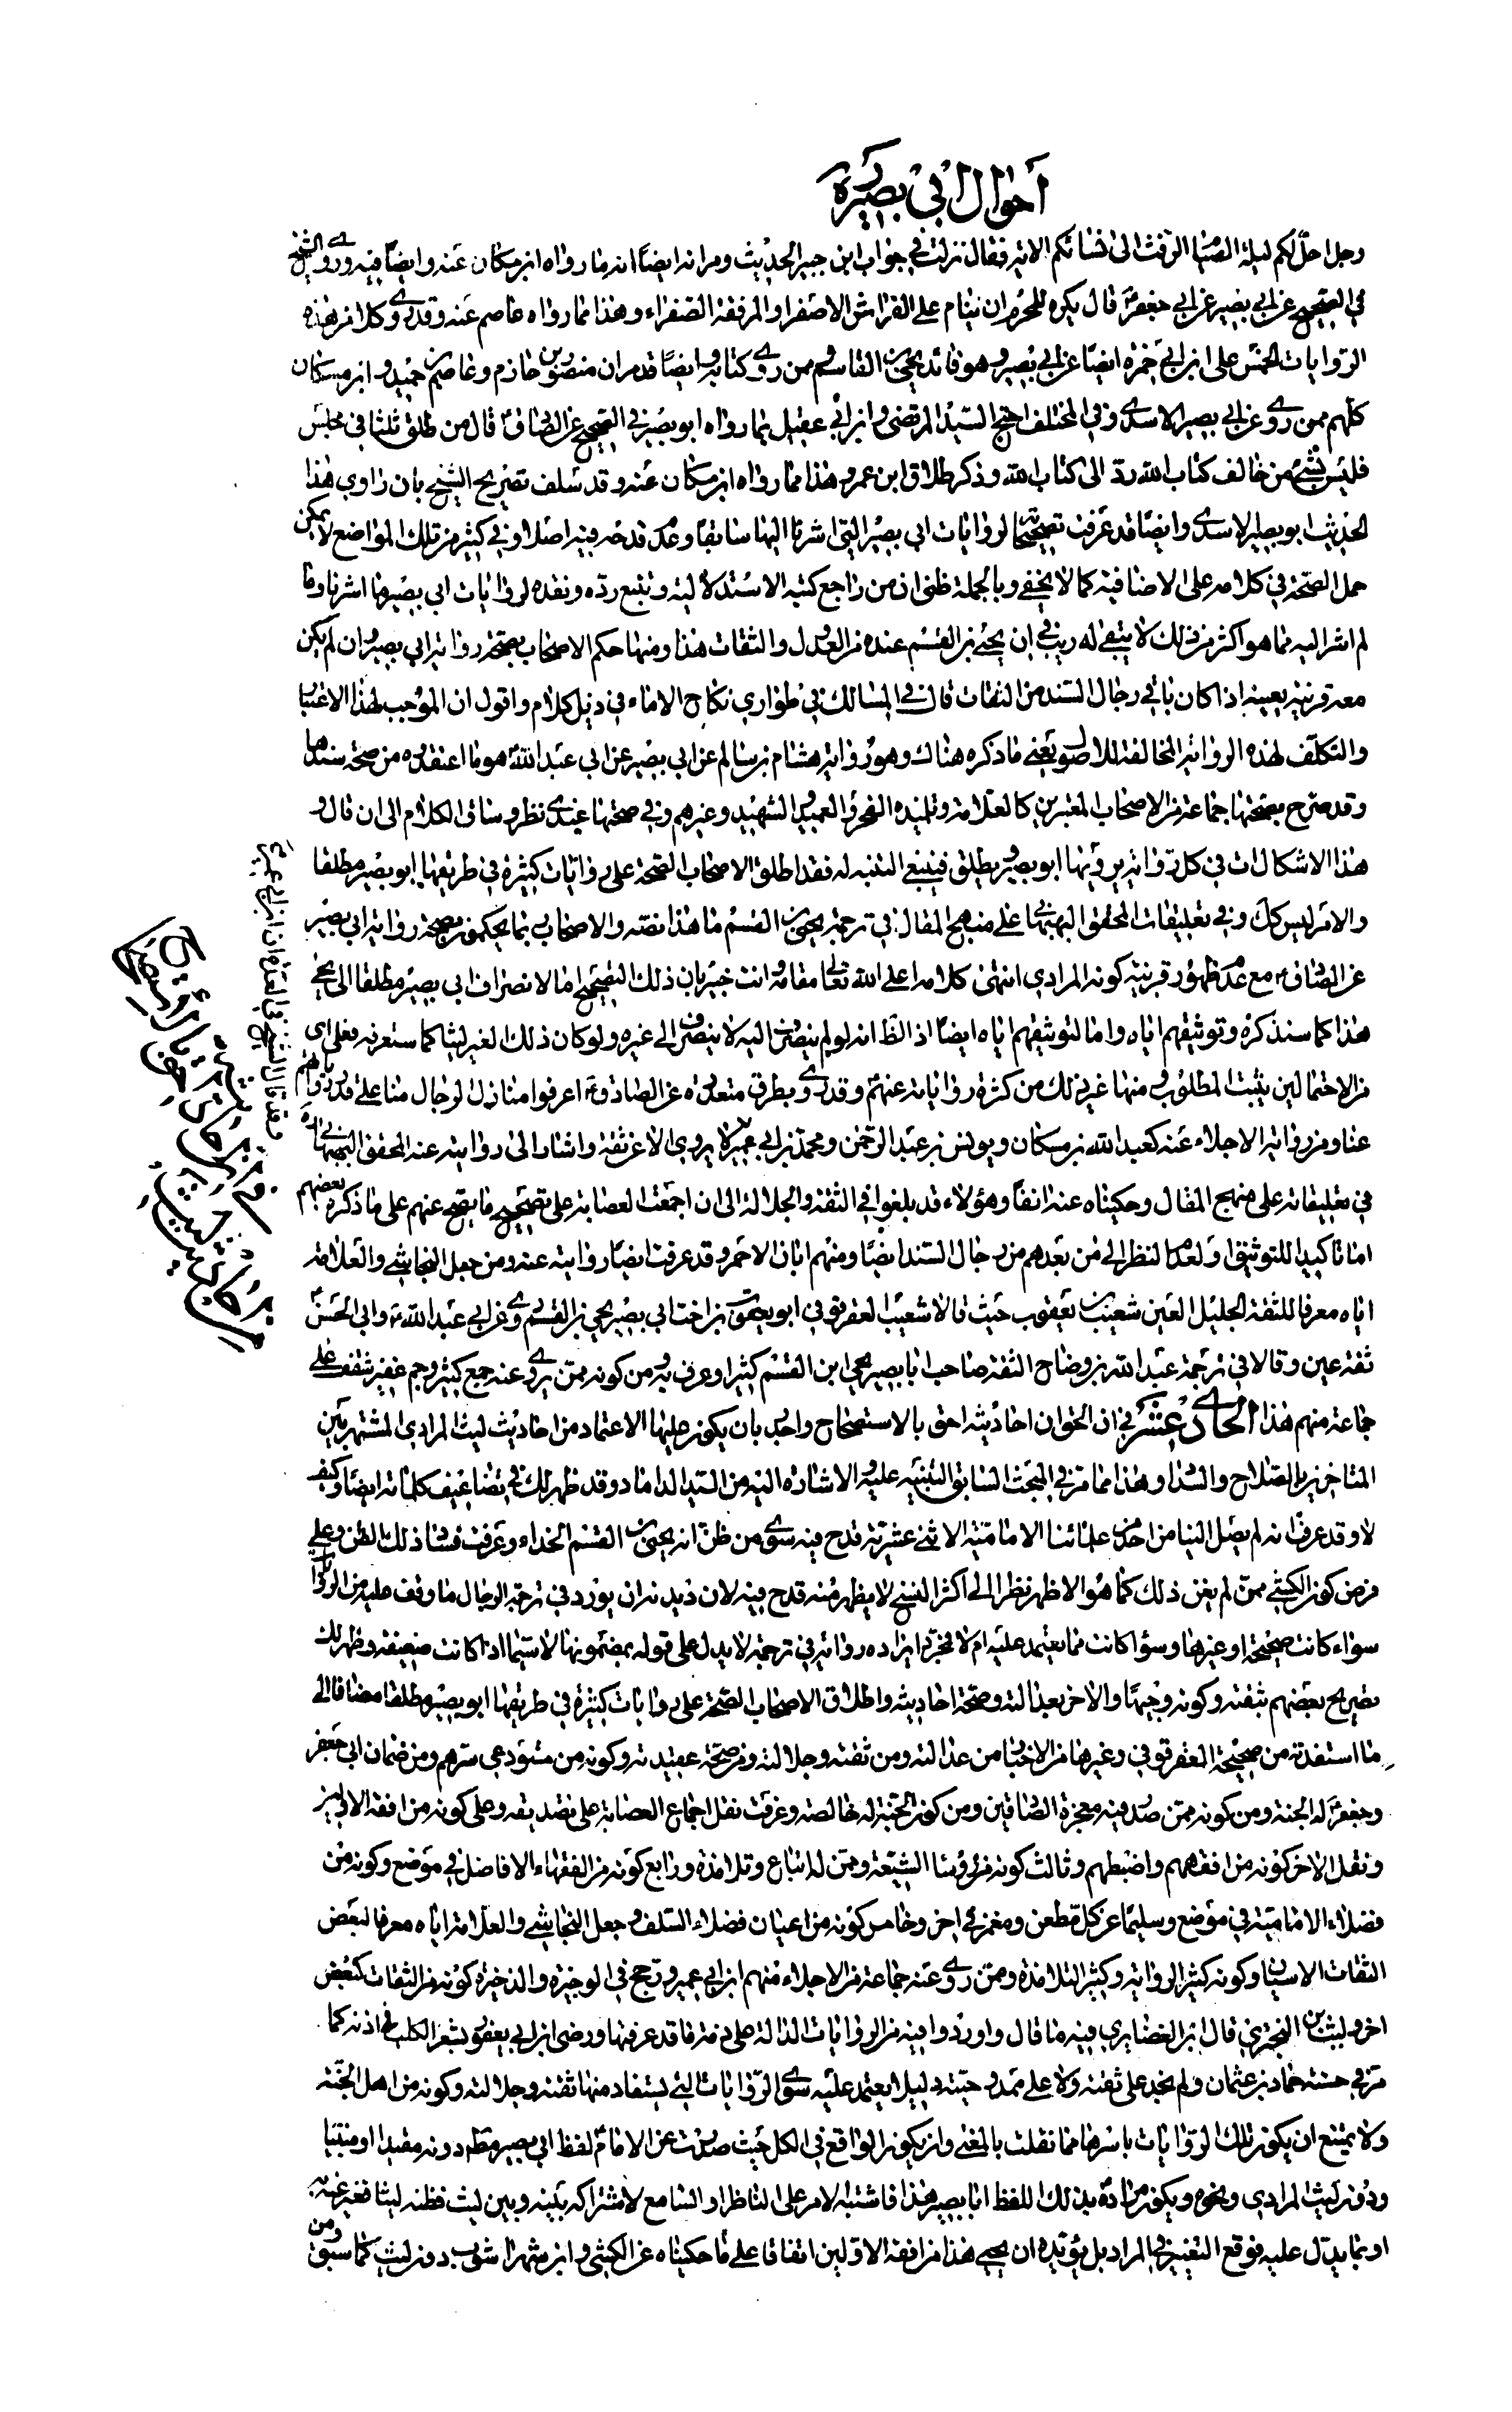 احوال ابی بصیر
وجل احل لکم لیلة الصیام الرفث الی نسائکم الایة فقال نزلت فی خوات ابن جبیر الحدیث ومر انه ایضا انه مما رواه ابن مسکان عنه وایضا فیه وروی الشیخ
فی الصحیح عن ابی بصیر عن ابی جعفر قال یکره للمحرم ان ینام علی الفراش الاصفر او المرفقة الصفراء وهذا مما رواه عاصم عنه وقد روی کلا من هذه
الروایات الخمس علی ابن ابی حمزة ایضا عن ابی بصیر وهو قائد یحیی بن القاسم وممن روی کتابه وایضا قد مر ان منصور بن حازم وعاصم بن حمید وابن مسکان
کلهم ممن روی عن ابی بصیر الاسدی وفی المختلف احتج السید المرتضی وابن ابی عقیل بما رواه ابو بصیر فی الصحیح عن الصادق قال من طلق ثلثا فی مجلس
فلیس بشئ من خالف کتاب الله رد الی کتاب الله وذکر طلاق ابن عمر وهذا مما رواه ابن مسکان عنه وقد سلف تصریح الشیخ بان راوی هذا
الحدیث ابو بصیر الاسدی وایضا قد عرفت تصحیحاته لروایات ابی بصیر التی اشرنا الیها سابقا وعدم قدحه فیه اصلا وفی کثیر من تلک المواضع لا یمکن
حمل الصحة فی کلامه علی الاضافیة کما لا یخفی وبالجملة ظنی ان من راجع کتبه الاستدلالیة وتتبع رده ونقده لروایات ابی بصیر ما اشرنا وما
لم اشر الیه مما هو اکثر من ذلک لا یبقی له ریب فی ان یحیی بن القسم عنده من العدول والثقات هذا ومنها حکم الاصحاب بصحة روایة ابی بصیر وان لم یکن
معه قرینة یعینه اذا کان باقی رجال السند من الثقات قال فی المسالک فی طواری نکاح الاماء فی ذیل کلام واقول ان الموجب لهذا الاعتبار
والتکلف لهذه الروایة المخالفة للاصول یعنی ما ذکره هناک وهو روایة هشام بن سالم عن ابی بصیر عن ابی عبد الله هو ما اعتقدوه من صحة سندها
وقد صرح بصحتها جماعة من الاصحاب المعتبرین کالعلامة وتلمیذه الفخر والعمید والشهید وغیرهم وفی صحتها عندی نظر وساق الکلام الی ان قال و
هذا الاشکال ات فی کل روایة یرویها ابو بصیر ویطلق فینبغی التنبه له فقد اطلق الاصحاب الصحة علی روایات کثیرة فی طریقها ابو بصیر مطلقا
والامر لیس کک وفی تعلیقات المحقق البهبهانی علی منهج المقال فی ترجمة یحیی بن القسم ما هذا نصه والاصحاب ربما یحکمون بصحة روایة ابی بصیر
عن الصادق مع عدم ظهور قرینة کونه المرادی انتهی کلامه اعلی الله تعالی مقامه وانت خبیر بان ذلک التصحیح اما لانصراف ابی بصیر مطلقا الی یحیی
هذا کما سنذکره وتوثیقهم ایاه واما لتوثیقهم ایاه ایضا اذ الظ انه لو لم ینصرف الیه لا ینصرف الی غیره ولو کان ذلک الغیر لیثا کما ستعرفه فعلی ای
من الاحتمالین یثبت المطلوب ومنها غیر ذلک من کثرة روایاته عنهم وقد روی بطرق متعددة عن الصادق اعرفوا منازل الرجال منا علی قدر روایاتهم
عنا ومن روایة الاجلاء عنه کعبد الله بن مسکان ویونس بن عبد الرحمن ومحمد بن ابی عمیر لا یروی الا عن ثقة واشار الی روایته عنه المحقق البهبهانی
فی تعلیقاته علی منهج المقال وحکیناه عنه انفا وهؤلاء قد بلغوا فی الثقة والجلالة الی ان اجمعت العصابة علی تصحیح ما یصح عنهم علی ما ذکره بعضهم
اما تاکیدا للتوثیق او لعدم النظر الی من بعدهم من رجال السند ایضا ومنهم ابان الاحمر وقد عرفت ایضا روایته عنه ومن جعل النجاشی والعلامة
ایاه معرفا للثقة الجلیل العین شعیب بن یعقوب حیث قالا شعیب العقرقوفی ابو یعقوب ابن اخت ابی بصیر یحیی بن القسم روی عن ابی عبد الله وابی الحسن
ثقة عین وقالا فی ترجمة عبد الله بن وضاح الثقة صاحب ابا بصیر یحیی ابن القسم کثیرا وعرف به ومن کونه ممن یروی عنه جمع کثیر وجم غفیر
جماعة منهم هذا الحادی عشر فی ان الحق ان احادیثه احق بالاستصحاح واجدر بان یکون علیها الاعتماد من احادیث لیث المرادی المشتهر بین
المتاخرین بالصلاح والسداد وهذا مما مر فی المبحث السابق التنبیه علیه والاشارة الیه من السید الداماد وقد ظهر لک فی تضاعیف کلماته ایضا وکیف
لا وقد عرفت انه لم یصل الینا من احد من علمائنا الامامیة الاثنی عشریة قدح فیه سوی من ظن انه یحیی بن القسم الحذاء وعرفت فساد ذلک الظن وعلی
فرض کون الکشی ممن لم یغن ذلک کما هو الاظهر نظرا الی اکثر النسخ لا یظهر منه قدح فیه لان دیدنه ان یورد فی ترجمة الرجال ما وقف علیه من الروایات
سواء کانت صحیحة او غیرها وسواء کانت مما یعتمد علیه ام لا فمجرد ایراده روایة فی ترجمة لا یدل علی قوله بمضمونها لا سیما اذا کانت ضعیفة وظهر لک
تصریح بعضهم بثقته وکونه وجیها والاخر بعدالته وصحة احادیثه واطلاق الاصحاب الصحة علی روایات کثیرة فی طریقها ابو بصیر مطلقا مضافا الی
ما استفدته من صحیحة العقرقوفی وغیرها من الاخبار من عدالته ومن ثقته وجلالته ومن صحة عقیدته وکونه من مستودعی سرهم ومن ضمان ابی جعفر
وجعفر له الجنة ومن کونه ممن صدر فیه معجزة الصادقین ومن کون الجنة له خالصة وعرفت نقل اجماع العصابة علی تصدیقه وعلی کونه من افقه الاولین
ونقل الاخر کونه من افقههم واضبطهم وثالث کونه من رؤساء الشیعة وممن له اتباع وتلامذة ورابع کونه من الفقهاء الافاضل فی موضع وکونه من
فضلاء الامامیة فی موضع وسلیما عن کل مطعن ومغمز فی اخر وخامس کونه من اعیان فضلاء السلف وجعل النجاشی والعلامة ایاه معرفا لبعض
الثقات الاعیان وکونه کثیر الروایة وکثیر التلامذة وممن روی عنه جماعة من الاجلاء منهم ابن ابی عمیر ورجح فی الوجیزة والذخیرة کونه من الثقات کبعض
اخر ولیث بن البختری قال ابن الغضایری فیه ما قال واوردوا فیه من الروایات الدالة علی ذمه ما قد عرفتها ورضی ابن ابی یعفور بشغر الکلب فی اذنه کما
مر فی حسنة حماد بن عثمان ولم نجد علی ثقته ولا علی ممدوحیته دلیلا یعتمد علیه سوی الروایات التی یستفاد منها ثقته وجلالته وکونه من اهل الجنة
ولا یمتنع ان یکون تلک الروایات باسرها مما نقلت بالمعنی وان یکون الواقع فی الکل حیث صدرت عن الامام لفظ ابی بصیر فقط دونه مقیدا او منتسبا
ودون لیث المرادی ونحوه ویکون مراده بذلک اللفظ ابا بصیر هذا فاشتبه الامر علی الناظر او السامع لاشتراکه بینه وبین لیث فظنه لیثا فعبر عنه به
او بما یدل علیه فوقع التغییر فی المراد بل یؤیده ان یحیی هذا من افقه الاولین اتفاقا علی ما حکیناه عن الکشی وابن شهراشوب دون لیث کما سبق ومن